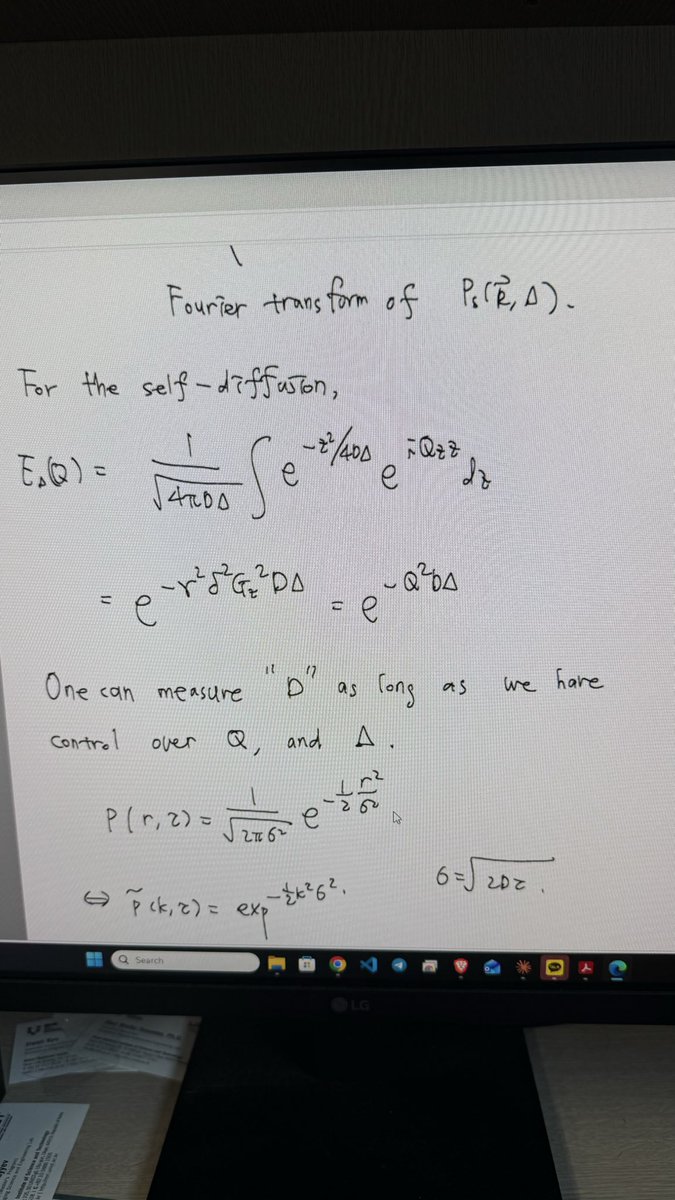 Fourier transform of Ps(k⃗, Δ).
For the self-diffusion,
E_Δ(Q) = 1/√(4πDΔ) ∫ e^(-z²/4DΔ) e^(iQ_z z) dz
= e^(-r²δ²G_z²DΔ) = e^(-Q²DΔ)
One can measure "D" as long as we have
control over Q, and Δ.
P(r,τ) = 1/√(2πσ²) e^(-1/2 r²/σ²)
⇔ p̃(k,τ) = exp^(-1/2 k²σ²). σ=√(2Dτ).
Search
LG